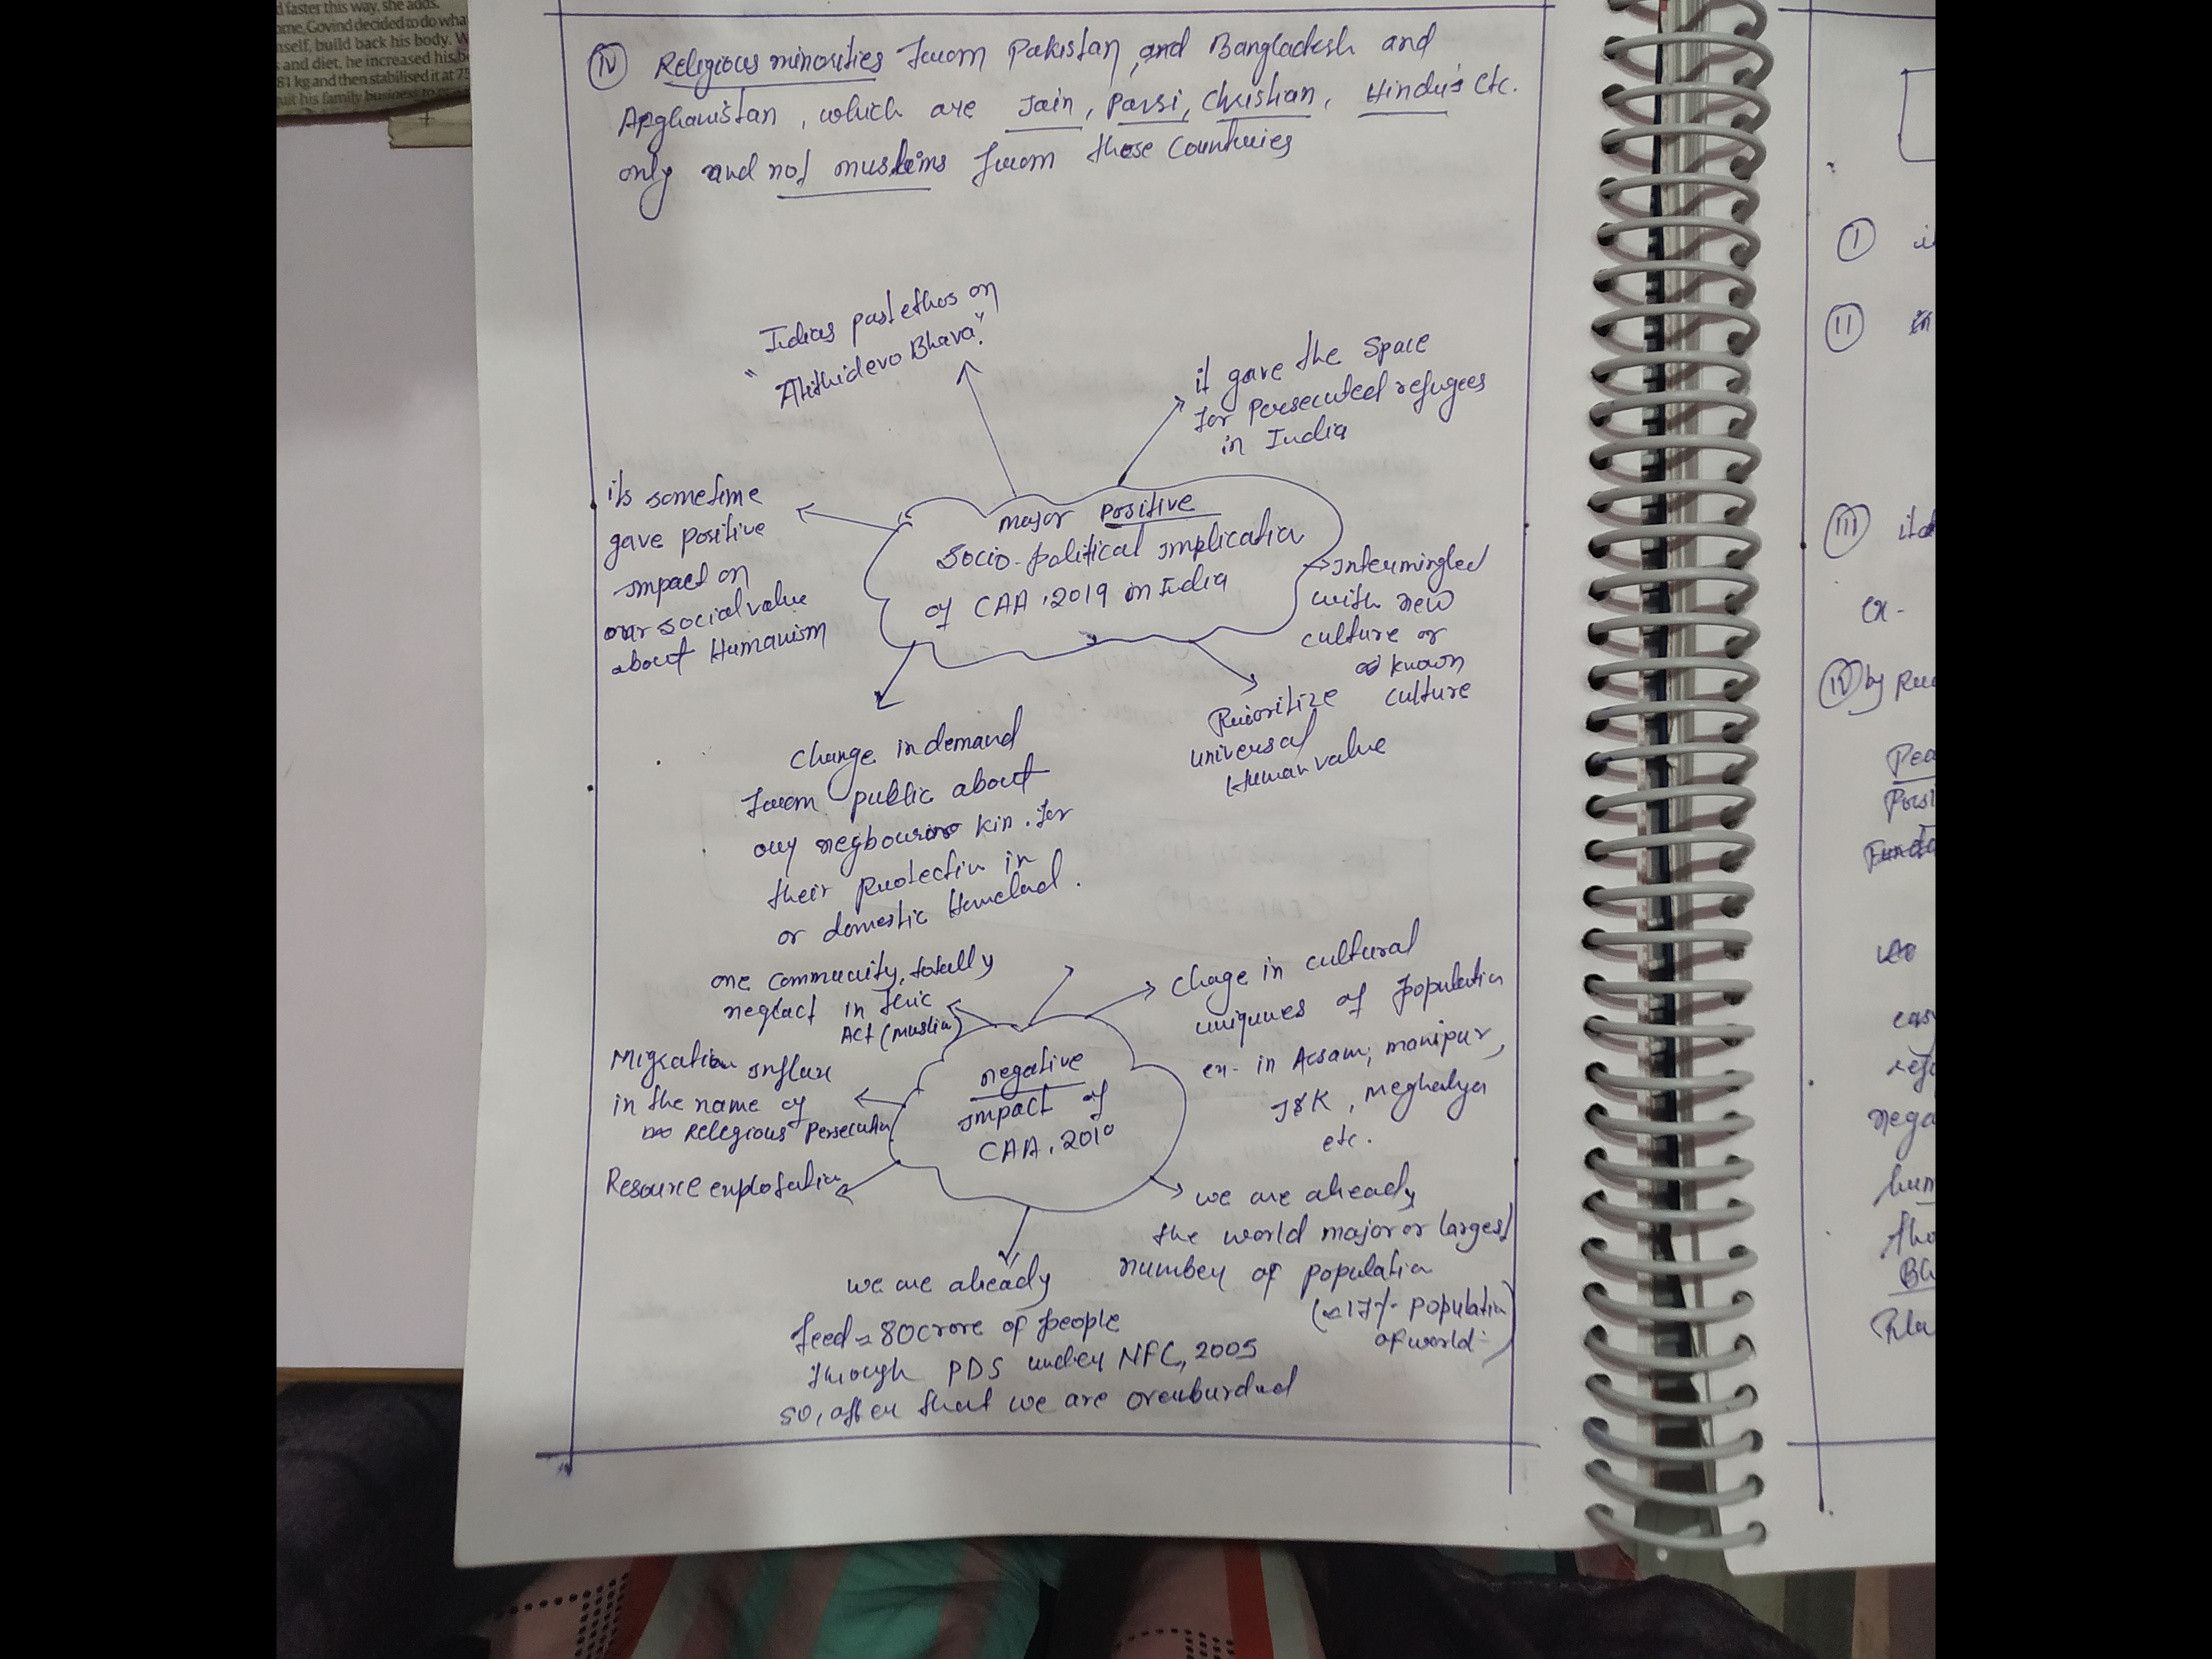 d faster this way, she adds.
ome, Govind decided to do wha
nself, build back his body. W
s and diet, he increased his b
81 kg and then stabilised it at 75
uit his family business to
(IV) Religious minorities from Pakistan, and Bangladesh and
Afghanistan, which are Jain, Parsi, Christian, Hindu's etc.
only and not muslims from those Countries
Indias past ethos on
"Atithidevo Bhava".
it gave the Space
for persecuted refugees
in India
its sometime
gave positive
impact on
our social value
about Humanism
major positive
Socio-political implication
of CAA, 2019 in India
intermingled
with new
culture or
known
culture
Prioritize
universal
Human value
Change in demand
from public about
our negbouring kin. for
their Protection in
or domestic Homelad.
one community, totally
neglact in
Act (muslim)
Migration influx
in the name of
Relegious Persecution
Resource explotation
negative
impact of
CAA, 2019
chage in cultural
uniqunes of population
ex- in Assam, manipur,
J&K, meghalya
etc.
we are already
the world major or largest
number of population
(≈17% population
of world-)
we are already
feed ≈ 80 crore of people
through PDS under NFC, 2005
so, after that we are overburdad
(I)
(II) in
(III)
ex-
(IV) by
Pea
neg